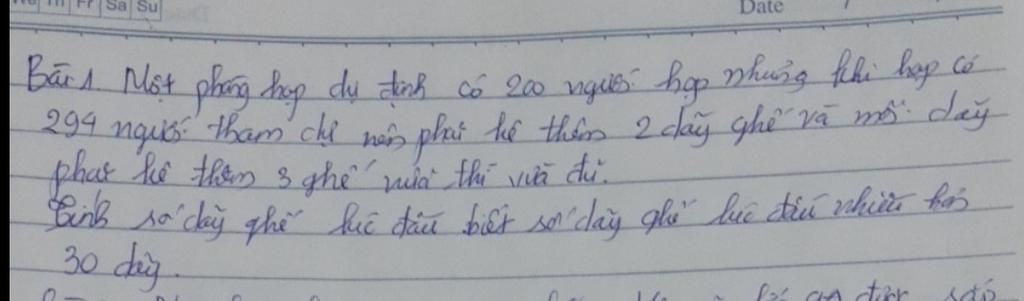 Th Fr Sa Su Date
Bài 1. Một phòng họp dự định có 200 người họp nhưng khi họp có
294 người tham dự nên phải kê thêm 2 dãy ghế và mỗi dãy
phải kê thêm 3 ghế nữa thì vừa đủ.
Tính số dãy ghế lúc đầu biết số dãy ghế lúc đầu nhiều hơn
30 dãy.